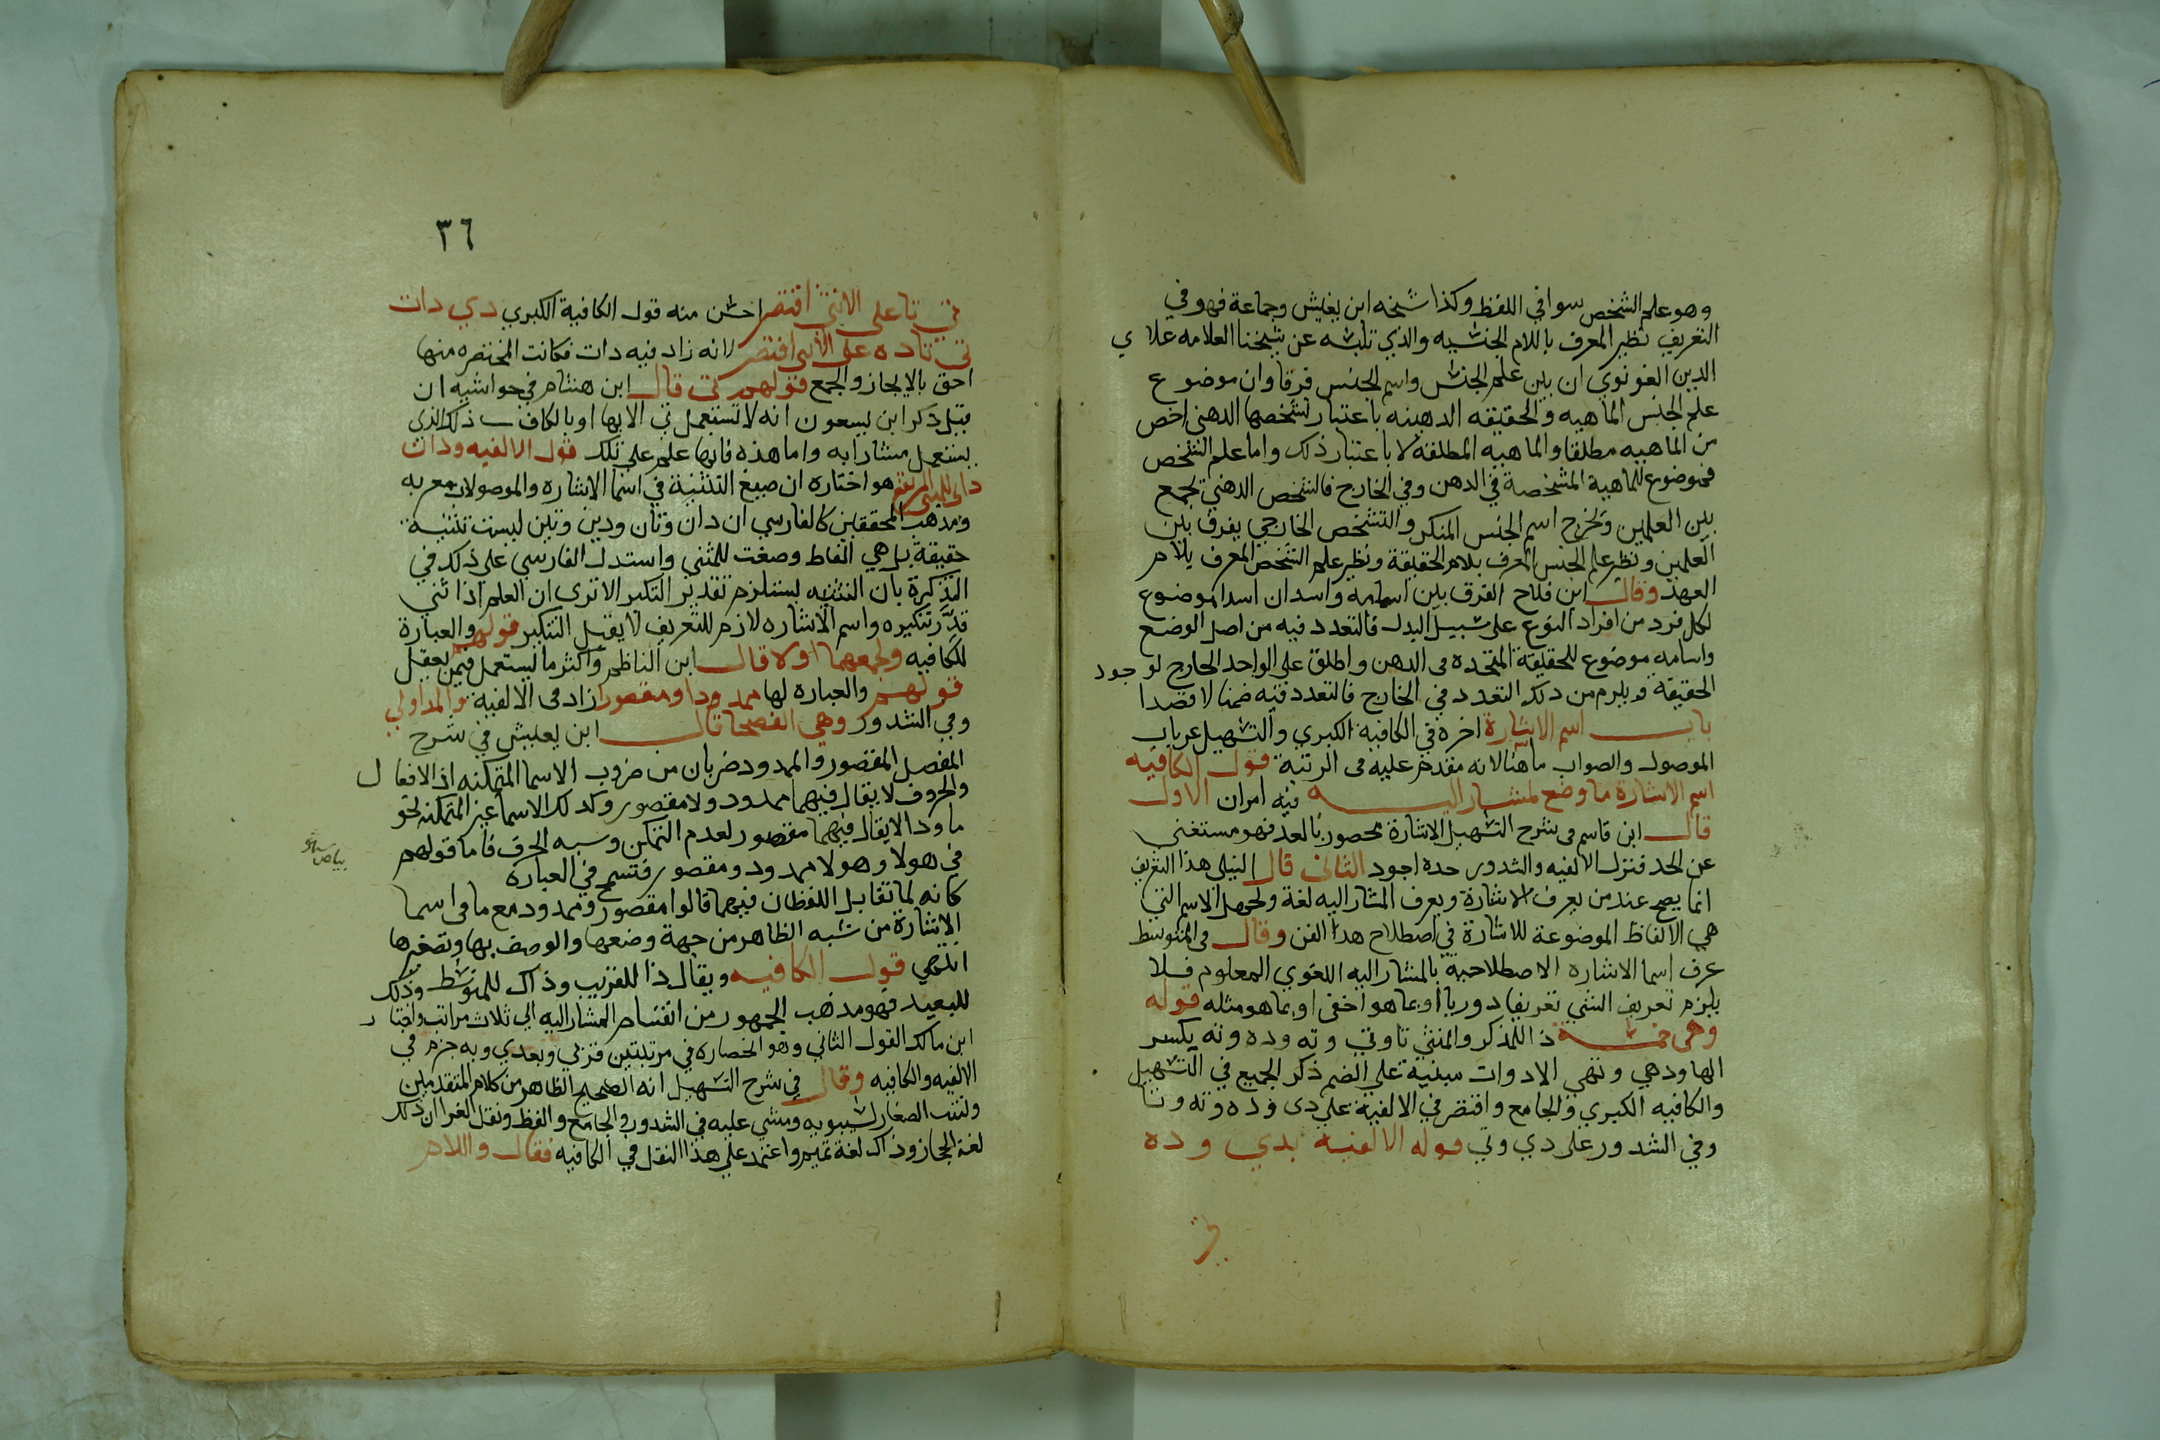 وهو علم الشخص سوا في اللفظ وكذا شيخه ابن يعيش وجماعة فهو في
التعريف نظير المعرف باللام الجنسيه والذي تلبثه عن شيخنا العلامه علاي
الدين القونوي ان بين علم الجنس واسم الجنس فرقا وان موضوع
علم الجنس الماهيه والحقيقه الدهنيه باعتبار تشخصها الدهني اخص
من الماهيه مطلقا والماهيه المطلقة لا باعتبار ذلك واما علم الشخص
فموضوع للماهية المشخصة في الدهن وفي الخارج فالتشخص الدهني يجمع
بين العلمين ويخرج اسم الجنس المنكر والتشخص الخارجي يفرق بين
العلمين ونظير علم الجنس المعرف بلام الحقيقة ونظير علم الشخص المعرف بلام
العهد وقال ابن فلاح الفرق بين اسامه واسد ان اسدا موضوع
لكل فرد من افراد النوع على سبيل البدل فالتعدد فيه من اصل الوضع
واسامه موضوع للحقيقة المتحده في الدهن واطلق على الواحد الخارج لوجود
الحقيقة ويلزم من دلك التعدد في الخارج فالتعدد فيه ضمنا لا قصدا
باب اسم الاشارة اخره في الكافية الكبري والتسهيل عن باب
الموصول والصواب ما هنا لانه مقدم عليه في الرتبة قول الكافيه
اسم الاشارة ما وضع لمشار اليه فيه امران الاول
قال ابن قاسم في شرح التسهيل الاشارة محصور بالعد فهو مستغني
عن الحد فنزل الالفيه والشدور حده اجود الثاني قال النيلي هذا التعريف
انما يصح عند من يعرف الاشارة ويعرف المشار اليه لغة ويجهل الاسم التي
هي الالفاظ الموضوعة للاشارة في اصطلاح هذا الفن وقال في المتوسط
عرف اسما الاشاره الاصطلاحية بالمشار اليه اللغوي المعلوم فلا
يلزم تعريف الشي تعريفا دوريا او بما هو اخفى او بما هو مثله قوله
وهي خمسة ذا للمذكر والمنثي تا وتي وته وده وته بكسر
الها ودهي وتهي الادوات مبنية على الضم ذكر الجميع في التسهيل
والكافيه الكبري والجامع واقتصر في الالفية على دى وده وته وتا
وفي الشدور على دي وتي قوله الالفيه بدي وده
٣٦
تي تا على الانثى اقتصر احسن منه قول الكافية الكبري دي دات
تي تا ده على الانثى اقتصر لانه زاد فيه دات فكانت المختصره منها
احق بالايجاز والجمع قولهم تي قال ابن هشام في حواشيه ان
قيل ذكر ابن يسعون انه لا تستعمل تي الا بها او بالكاف ذلك الذي
يستعمل مشارا به واما هذه فانها علم على تلك قول الالفيه ودان
تان للمثنى المرتفع هو اختاره ان صيغ التثنية في اسما الاشاره والموصولات معربه
ومذهب المحققين كالفارسي ان دان وتان ودين وتين ليست تثنيه
حقيقة بل هي الفاظ وضعت للمثني واستدل الفارسي على ذلك في
التذكرة بان التثنيه يستلزم تقدير التكير الا ترى ان العلم اذا ثني
قدر تنكيره واسم الاشاره لازم للتعريف لا يقبل التنكير قولهم والعبارة
للكافيه ولجمعهما اولا قال ابن الناظم واكثر ما يستعمل فيمن يعقل
قولهم والعباره لها ممدودا ومقصورا زاد في الالفية والمد اولي
وفي الشدور وهي الفصحا قال ابن يعيش في شرح
المفصل المقصور والممدود ضربان من ضروب الاسما المتمكنه اذ الافعال
والحروف لا يقال فيهما ممدود ولا مقصور وكدلك الاسما غير المتمكنه نحو
ما ودا لا يقال فيهما مقصور لعدم التمكن وسبه الحرف فاما قولهم
في هولا وهولا ممدود ومقصور فتسمح في العبارة
كانه لما تقابل اللفظان فيهما قالوا مقصور وممدود مع ما في اسما
الاشارة من شبه الظاهر من جهة وضعها والوصف بها وتصغيرها
انتهي قول الكافيه ويقال ذا للقريب وذاك للمتوسط وذلك
للبعيد فهو مذهب الجمهور من انقسام المشار اليه الى ثلاث مراتب واختار
ابن مالك القول الثاني وهو انحصاره في مرتبتين قربي وبعدي وبه جزم في
الالفيه والكافيه وقال في شرح التسهيل انه الصحيح الظاهر من كلام المتقدمين
ونسب الصفار لسيبويه ومشي عليه في الشدور والجامع والقطر ونقل الفرا ان ذلك
لغة الحجاز وذاك لغة تميم واعتمد على هذا النقل في الكافيه فقال واللام
بياض سهو